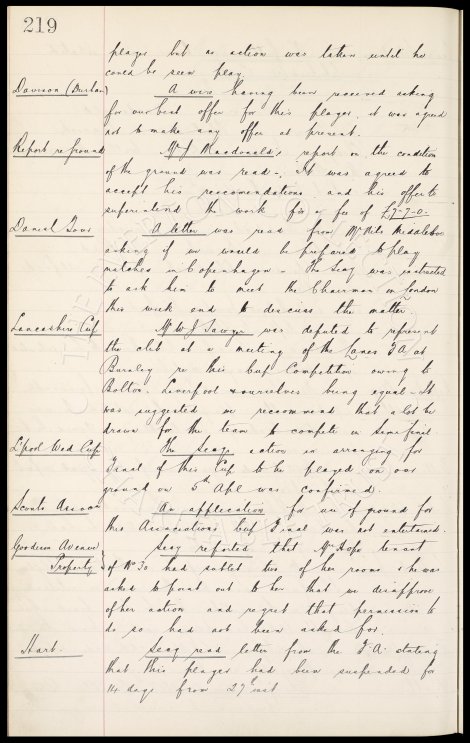 219
player but no action was taken until he
could be seen play.
Davison (Durham) A wire having been received asking
for our best offer for this player, it was agreed
not to make any offer at present.
Report re ground Mr J Macdonald's report on the condition
of the ground was read - It was agreed to
accept his reccomendations and his offer to
superintend the work for a fee of £7-7-0.
Danish Tour A letter was read from Mr Nils Middelboe
asking if we would be prepared to play
matches in Copenhagen - The Secy was instructed
to ask him to meet the Chairman in London
this week end to discuss the matter
Lancashire Cup Mr W J Sawyer was deputed to represent
the club at a meeting of the Lancs F.A. at
Burnley re this Cup Competition owing to
Bolton, Liverpool & ourselves being equal - It
was suggested we recommend that a lot be
drawn for the team to compete in Semi final.
L'pool Wed Cup The Secy's action in arranging for
Final of this Cup to be played on our
ground on 5th Apl was confirmed.
Scouts Assocn An application for use of ground for
this Associations Cup Final was not entertained.
Goodison Avenue Secy reported that Mrs tenant
Property of No 30 had sublet two of her rooms & he was
asked to point out to her that we disapprove
of her action and regret that permission to
do so had not been asked for.
Hart. Secy read letter from the F.A. stating
that this player had been suspended for
14 days from 27th inst